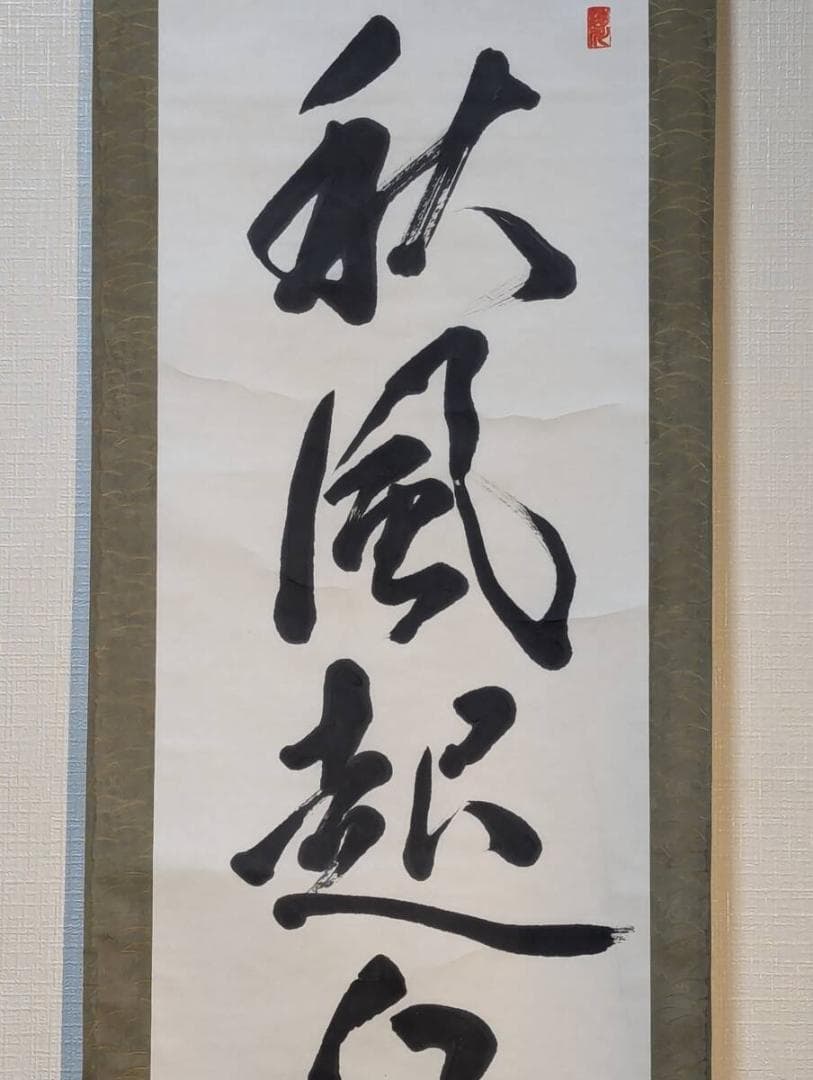 秋風起